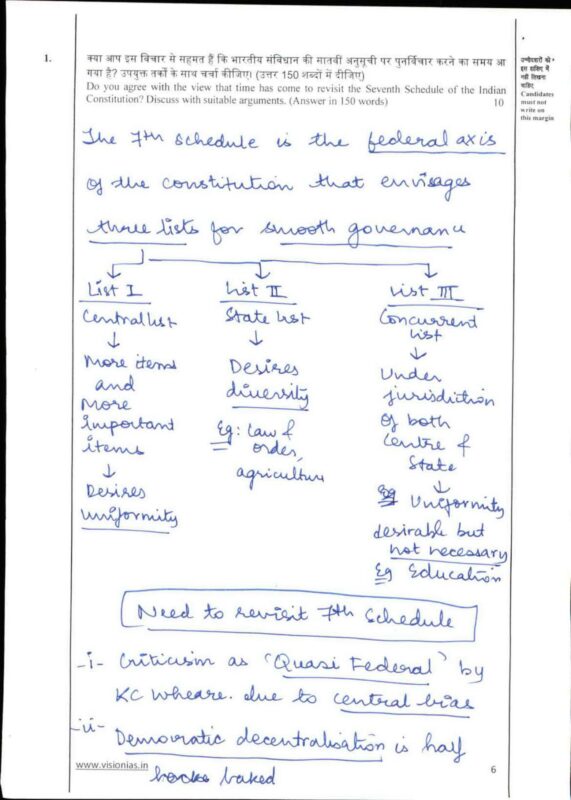 1.
क्या आप इस विचार से सहमत हैं कि भारतीय संविधान की सातवीं अनुसूची पर पुनर्विचार करने का समय आ
गया है? उपयुक्त तर्कों के साथ चर्चा कीजिए। (उत्तर 150 शब्दों में दीजिए)
Do you agree with the view that time has come to revisit the Seventh Schedule of the Indian
Constitution? Discuss with suitable arguments. (Answer in 150 words)
10
उम्मीदवारों को
इस हाशिए में
नहीं लिखना
चाहिए
Candidates
must not
write on
this margin
The 7th schedule is the federal axis
of the constitution that envisages
three lists for smooth governance
List I
Central list
More items
and
More
important
items
Desires
uniformity
List II
State list
Desires
diversity
Eg: Law &
order,
agriculture
List III
Concurrent
list
Under
jurisdiction
of both
Centre &
State
Uniformity
desirable but
not necessary
Eg Education
Need to revisit 7th Schedule
-i- Criticism as 'Quasi Federal' by
KC Wheare. due to central bias
-ii- Democratic decentralisation is half
baked
www.visionias.in
6